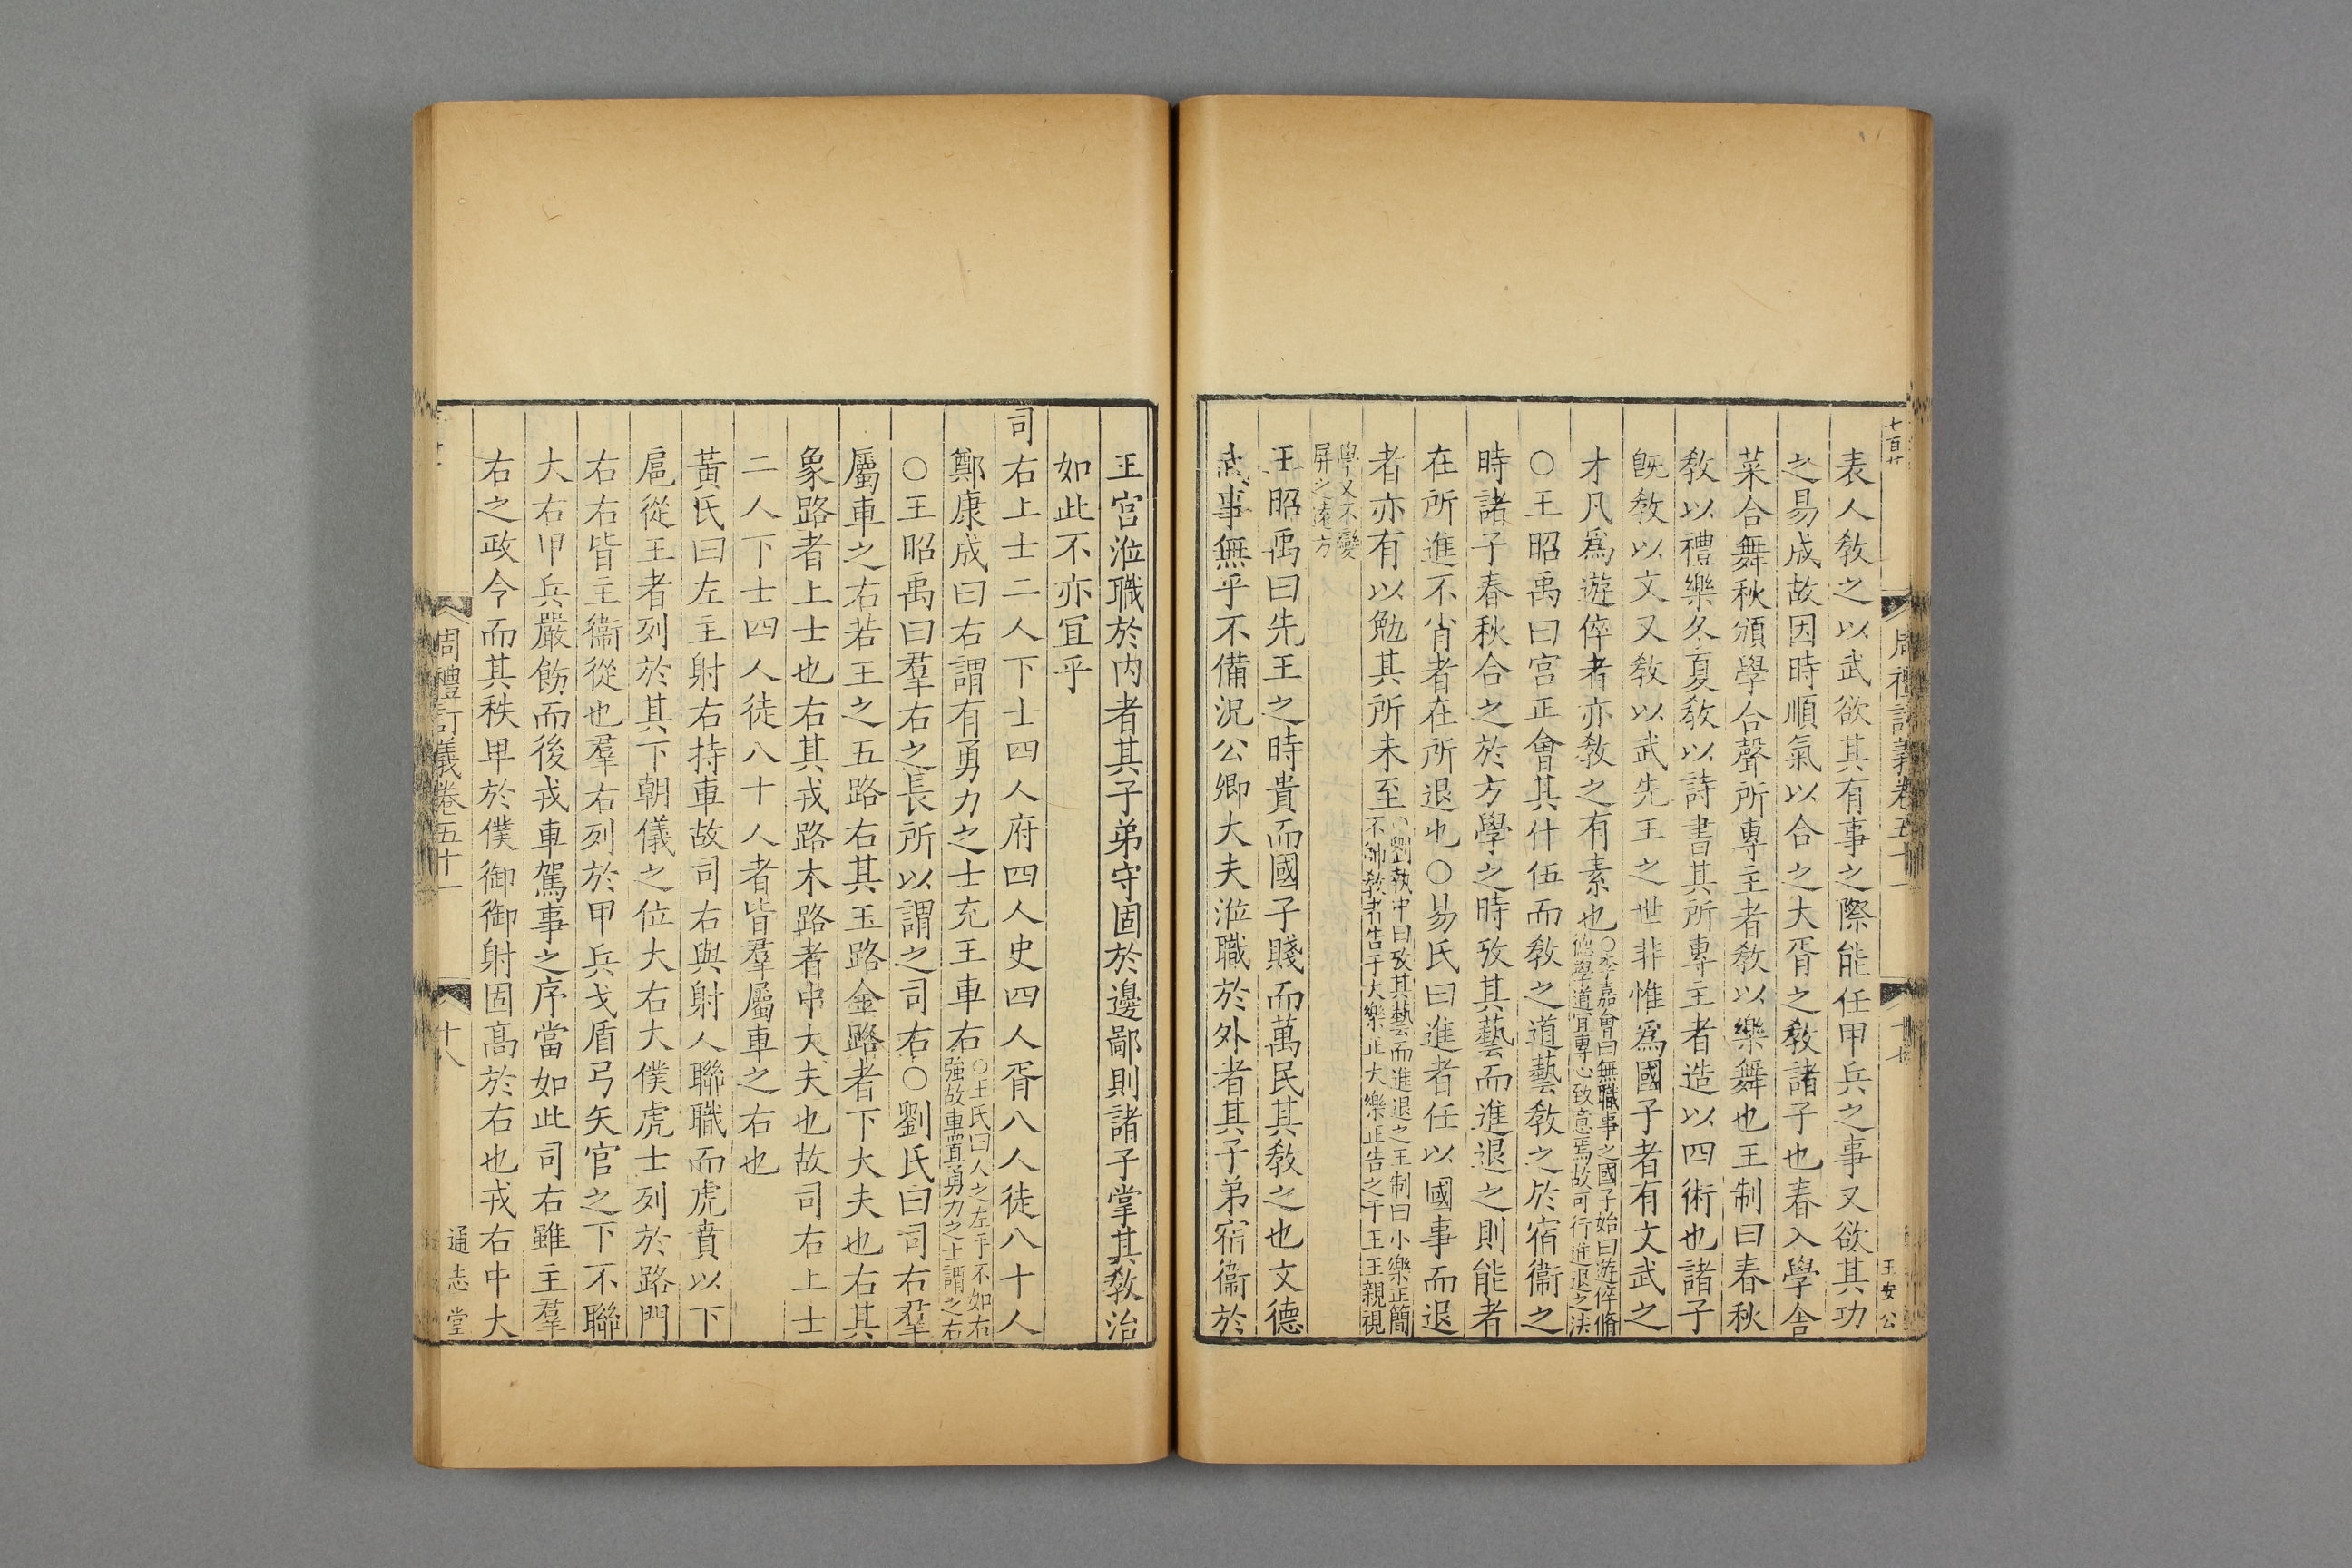 表人敎之以武欲其有事之際能任甲兵之事又欲其功
之易成故因時順氣以合之大胥之敎諸子也春入學舍
菜合舞秋頒學合聲所專主者敎以樂舞也王制曰春秋
敎以禮樂冬夏敎以詩書其所專主者造以四術也諸子
旣敎以文又敎以武先王之世非惟爲國子者有文武之
才凡爲遊倅者亦敎之有素也○李嘉會曰無職事之國子始曰遊倅脩
德學道宜專心致意焉故可行進退之法
○王昭禹曰宫正會其什伍而敎之道藝敎之於宿衞之
時諸子春秋合之於方學之時攷其藝而進退之則能者
在所進不肖者在所退也○易氏曰進者任以國事而退
者亦有以勉其所未至○劉執中曰攷其藝而進退之王制曰小樂正簡
不帥敎者告于大樂正大樂正告之于王王親視
學又不變
屏之遠方
王昭禹曰先王之時貴而國子賤而萬民其敎之也文德
武事無乎不備況公卿大夫涖職於外者其子弟宿衞於
周禮訂義卷五十一
王安公
王宫涖職於内者其子弟守固於邊鄙則諸子掌其敎治
如此不亦宜乎
司右上士二人下士四人府四人史四人胥八人徒八十人
鄭康成曰右謂有勇力之士充王車右○王氏曰人之左手不如右
強故車置勇力之士謂之右
○王昭禹曰羣右之長所以謂之司右○劉氏曰司右羣
屬車之右若王之五路右其玉路金路者下大夫也右其
象路者上士也右其戎路木路者中大夫也故司右上士
二人下士四人徒八十人者皆羣屬車之右也
黃氏曰左主射右持車故司右與射人聯職而虎賁以下
扈從王者列於其下朝儀之位大右大僕虎士列於路門
右右皆主衞從也羣右列於甲兵戈盾弓矢官之下不聯
大右甲兵嚴飭而後戎車駕事之序當如此司右雖主羣
右之政令而其秩卑於僕御御射固高於右也戎右中大
周禮訂義卷五十一
十八
通志堂